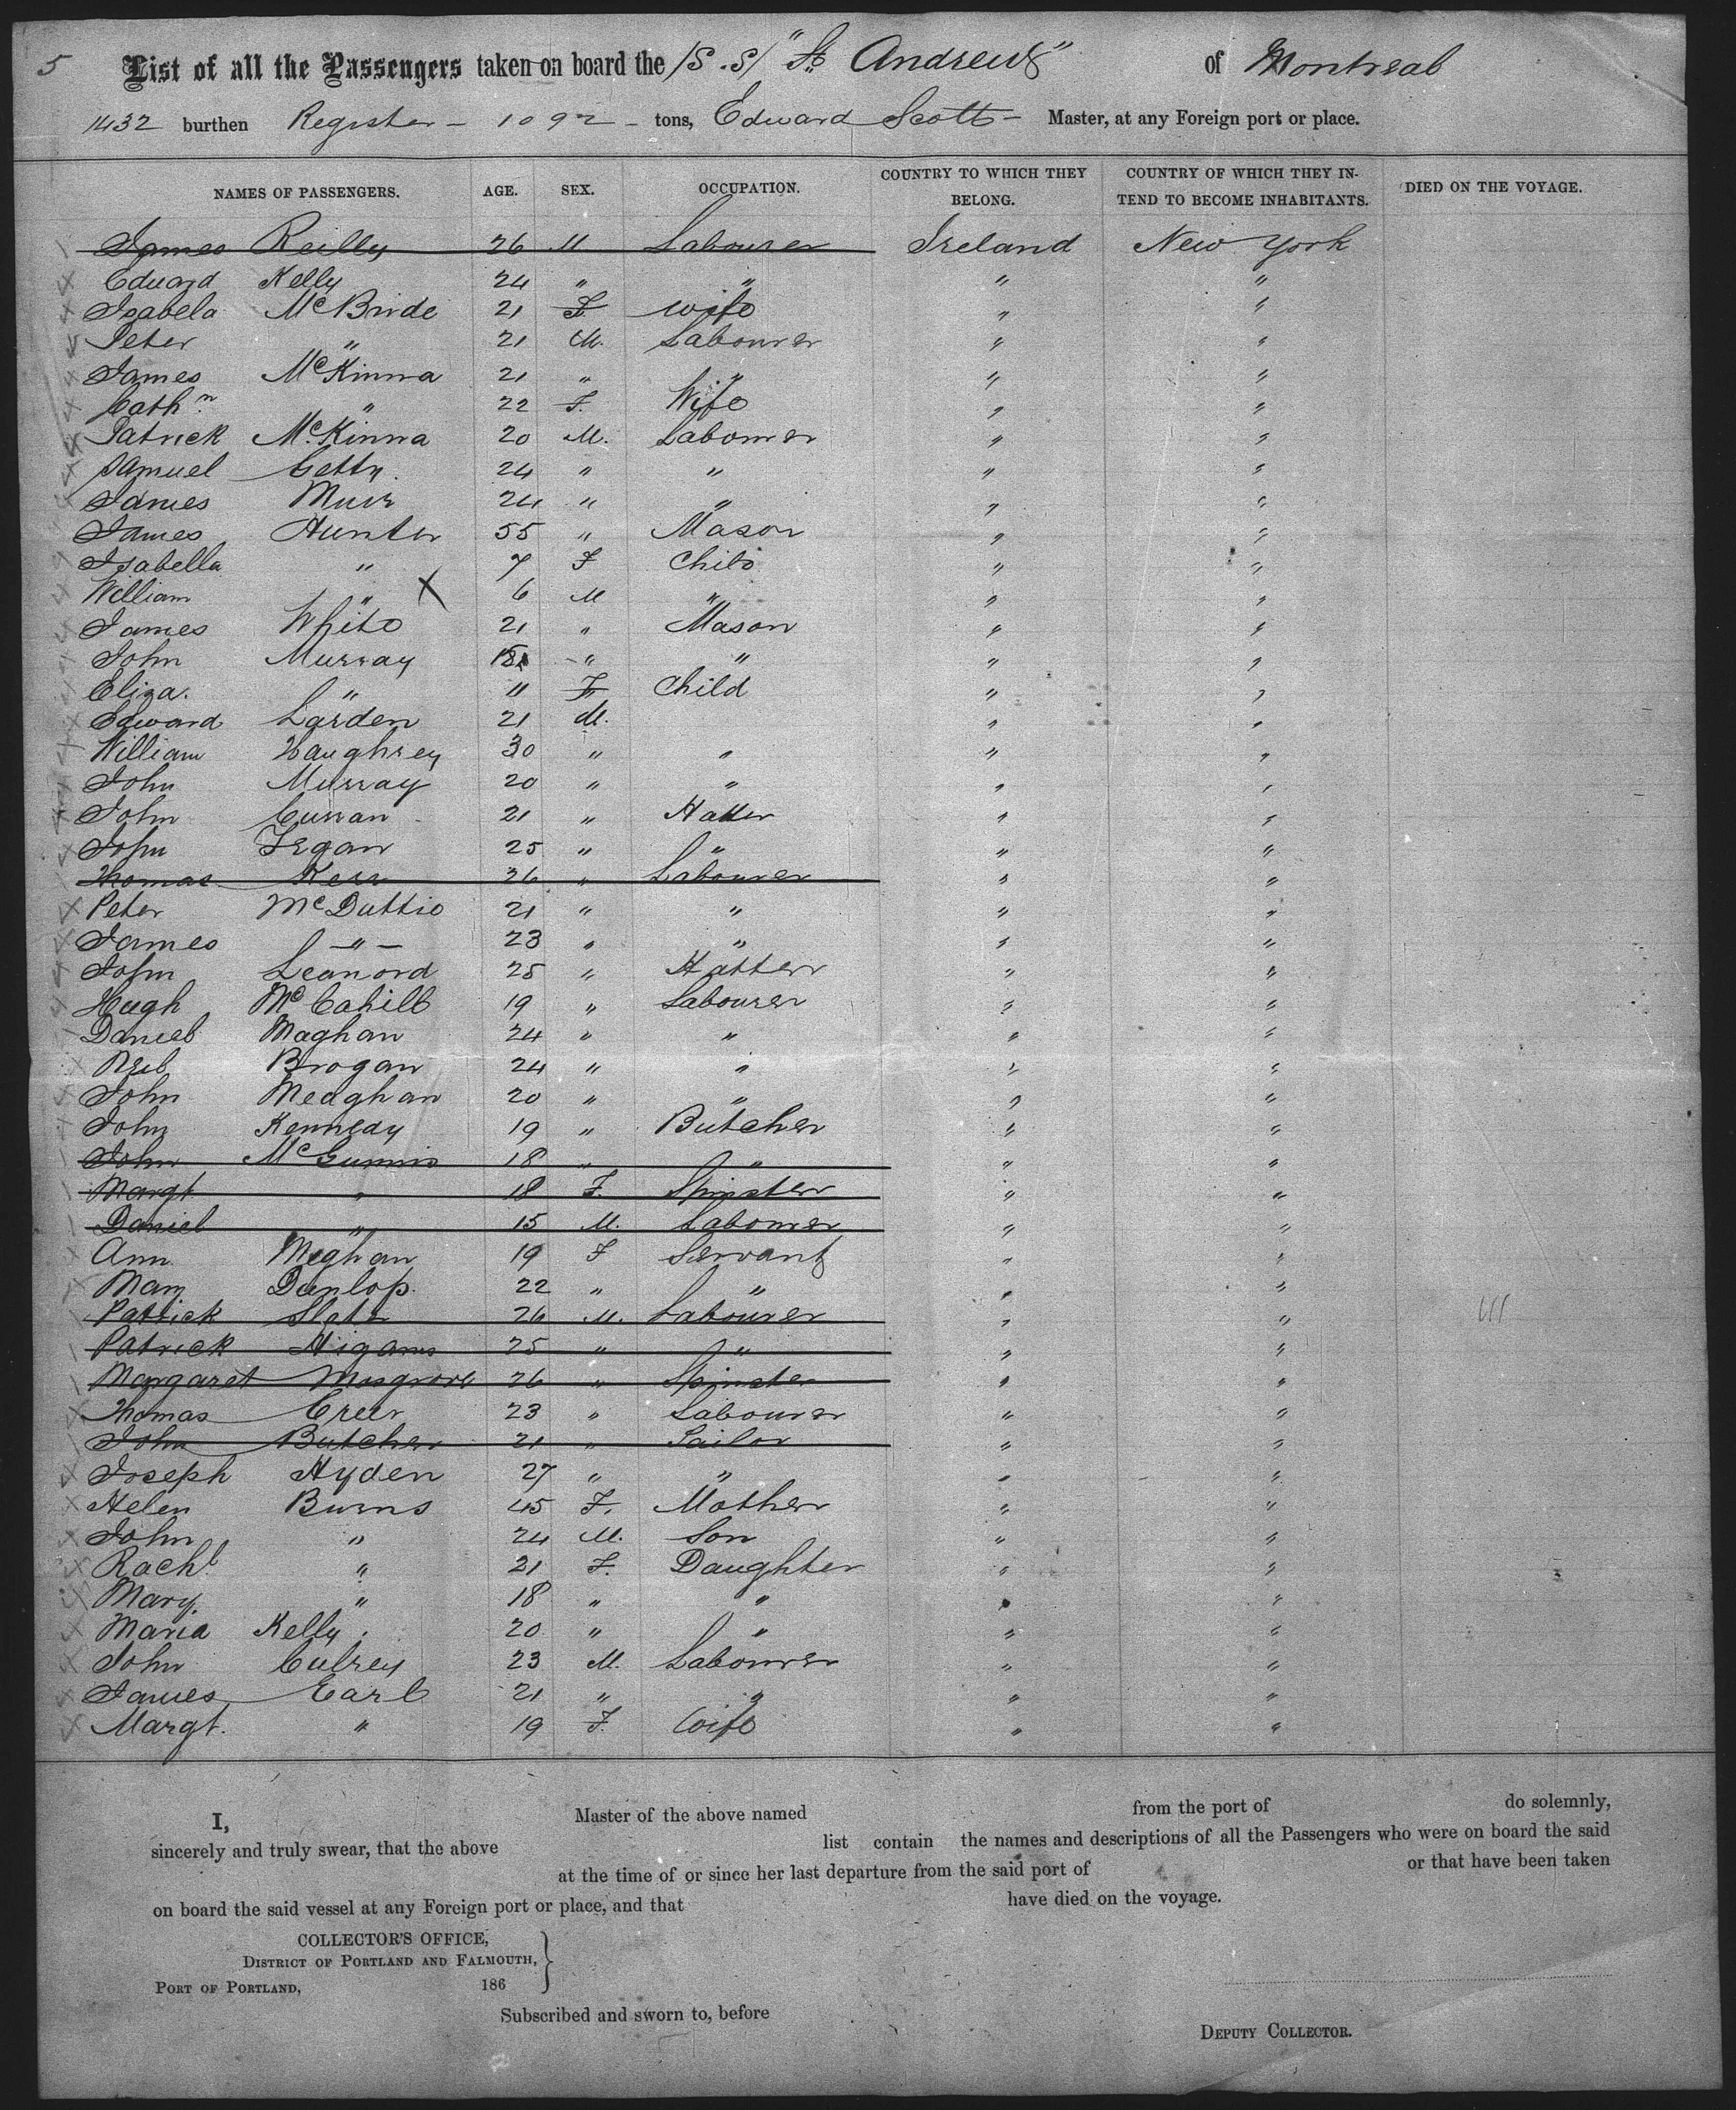 5 List of all the Passengers taken on board the /S.S/ "St. Andrews" of Montreal
1432 burthen Register - 1092 - tons, Edward Scott - Master, at any Foreign port or place.
NAMES OF PASSENGERS. AGE. SEX. OCCUPATION. COUNTRY TO WHICH THEY BELONG. COUNTRY OF WHICH THEY INTEND TO BECOME INHABITANTS. DIED ON THE VOYAGE.
James Reilly 26 M Labourer Ireland New York
Edward Kelly 24 " " " "
Isabela McBride 21 F wife " "
Peter " 21 M. Labourer " "
James McKinna 21 " " " "
Cathn. " 22 F. Wife " "
Patrick McKinna 20 M. Labourer " "
Samuel Getty 24 " " " "
James Muir 24 " " " "
James Hunter 55 " Mason " "
Isabella " 7 F Child " "
William " X 6 M " " "
James White 21 " Mason " "
John Murray " " " "
Eliza. " 11 F Child " "
Edward Larden 21 M. " "
William Haughrey 30 " " " "
John Murray 20 " " " "
John Curran 21 " Hatter " "
John Fegan 25 " " " "
Thomas Kerr 26 " Labourer " "
Peter McDuttie 21 " " " "
James - " - 23 " " " "
John Leanord 25 " Hatter " "
Hugh McCahill 19 " Labourer " "
Daniel Maghan 24 " " " "
Neil Brogan 24 " " " "
John Meaghan 20 " " " "
John Kennedy 19 " Butcher " "
John McGunnis 18 " " " "
Margt " 18 F. Spinster " "
Daniel " 15 M. Labourer " "
Ann Meghan 19 F Servant " "
Mary Dunlop. 22 " " " "
Patrick 26 M. Labourer " "
Patrick Higans 25 " " " "
Margaret Mosgrove 26 " Spinster " "
Thomas Greer 23 " Labourer " "
John Butcher 21 " Sailor " "
Joseph Hyden 27 " " " "
Helen Burns 45 F. Mother " "
John " 24 M. Son " "
Rachl. " 21 F. Daughter " "
Mary " 18 " " " "
Maria Kelly. 20 " " " "
John Culrey 23 M. Labourer " "
James Earl 21 " " " "
Margt. " 19 F. Wife " "
I, Master of the above named from the port of do solemnly,
sincerely and truly swear, that the above list contain the names and descriptions of all the Passengers who were on board the said
at the time of or since her last departure from the said port of or that have been taken
on board the said vessel at any Foreign port or place, and that have died on the voyage.
COLLECTOR'S OFFICE,
DISTRICT OF PORTLAND AND FALMOUTH,
PORT OF PORTLAND, 186
Subscribed and sworn to, before
DEPUTY COLLECTOR.